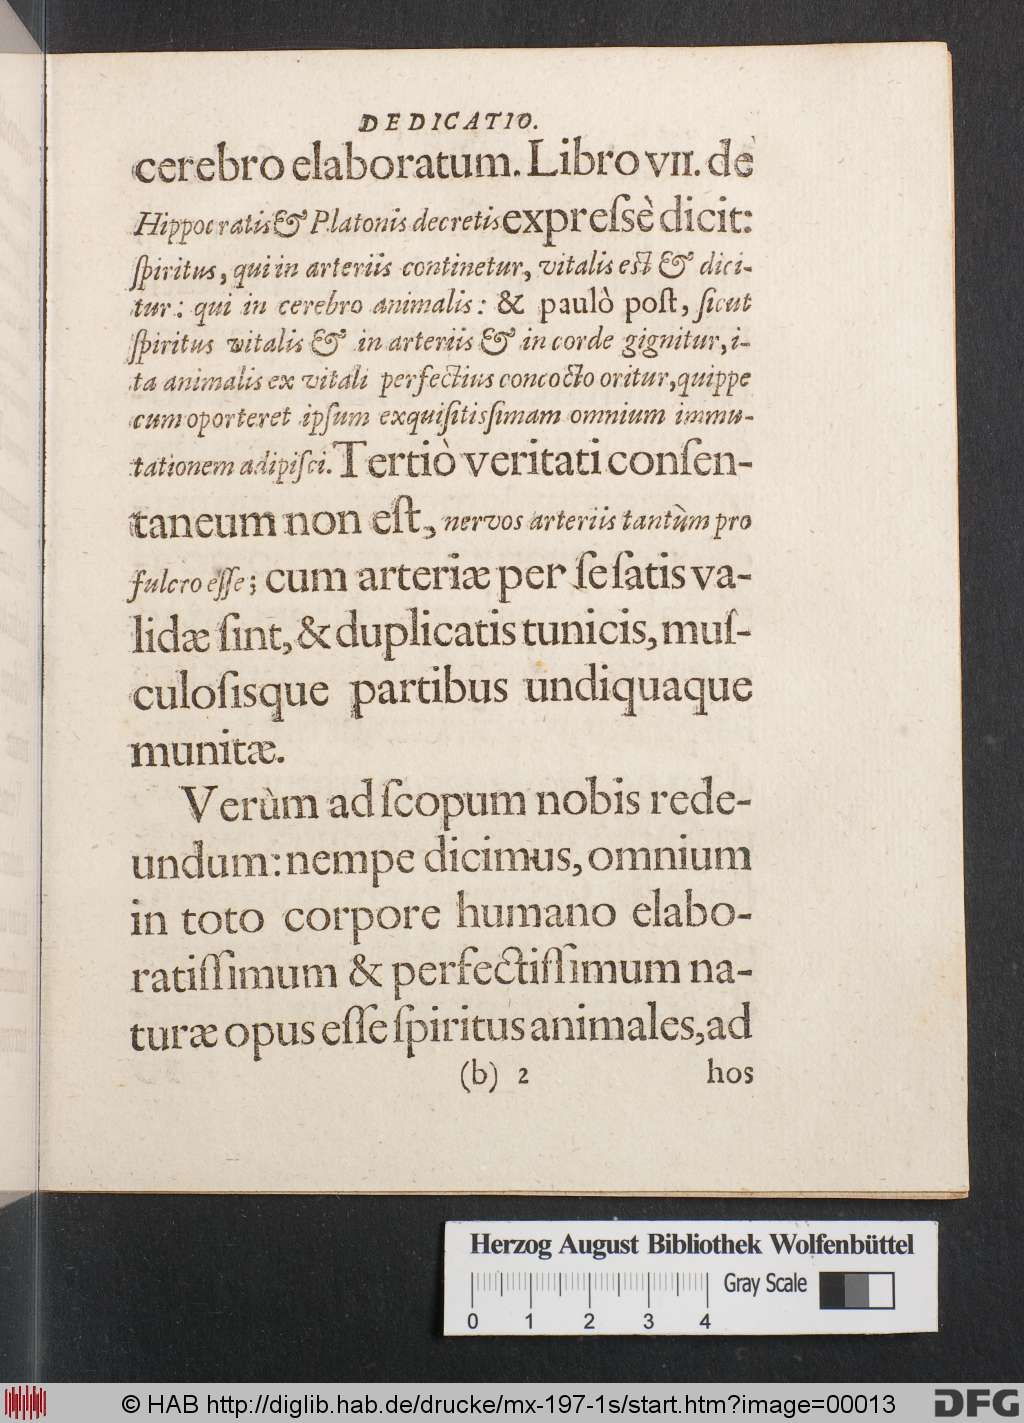 DEDICATIO.
cerebro elaboratum. Libro VII. de
Hippocratis & Platonis decretis expreſsè dicit:
ſpiritus, qui in arteriis continetur, vitalis est & dici-
tur: qui in cerebro animalis: & paulò poſt, ſicut
ſpiritus vitalis & in arteriis & in corde gignitur, i-
ta animalis ex vitali perfectius concocto oritur, quippe
cum oporteret ipſum exquiſitisſimam omnium immu-
tationem adipiſci. Tertiò veritati conſen-
taneum non eſt, nervos arteriis tantùm pro
fulcro eſſe; cum arteriæ per ſe ſatis va-
lidæ ſint, & duplicatis tunicis, muſ-
culoſisque partibus undiquaque
munitæ.
Verùm ad ſcopum nobis rede-
undum: nempe dicimus, omnium
in toto corpore humano elabo-
ratiſſimum & perfectiſſimum na-
turæ opus eſſe ſpiritus animales, ad
(b) 2 hos
Herzog August Bibliothek Wolfenbüttel
Gray Scale
0 1 2 3 4
© HAB http://diglib.hab.de/drucke/mx-197-1s/start.htm?image=00013
DFG